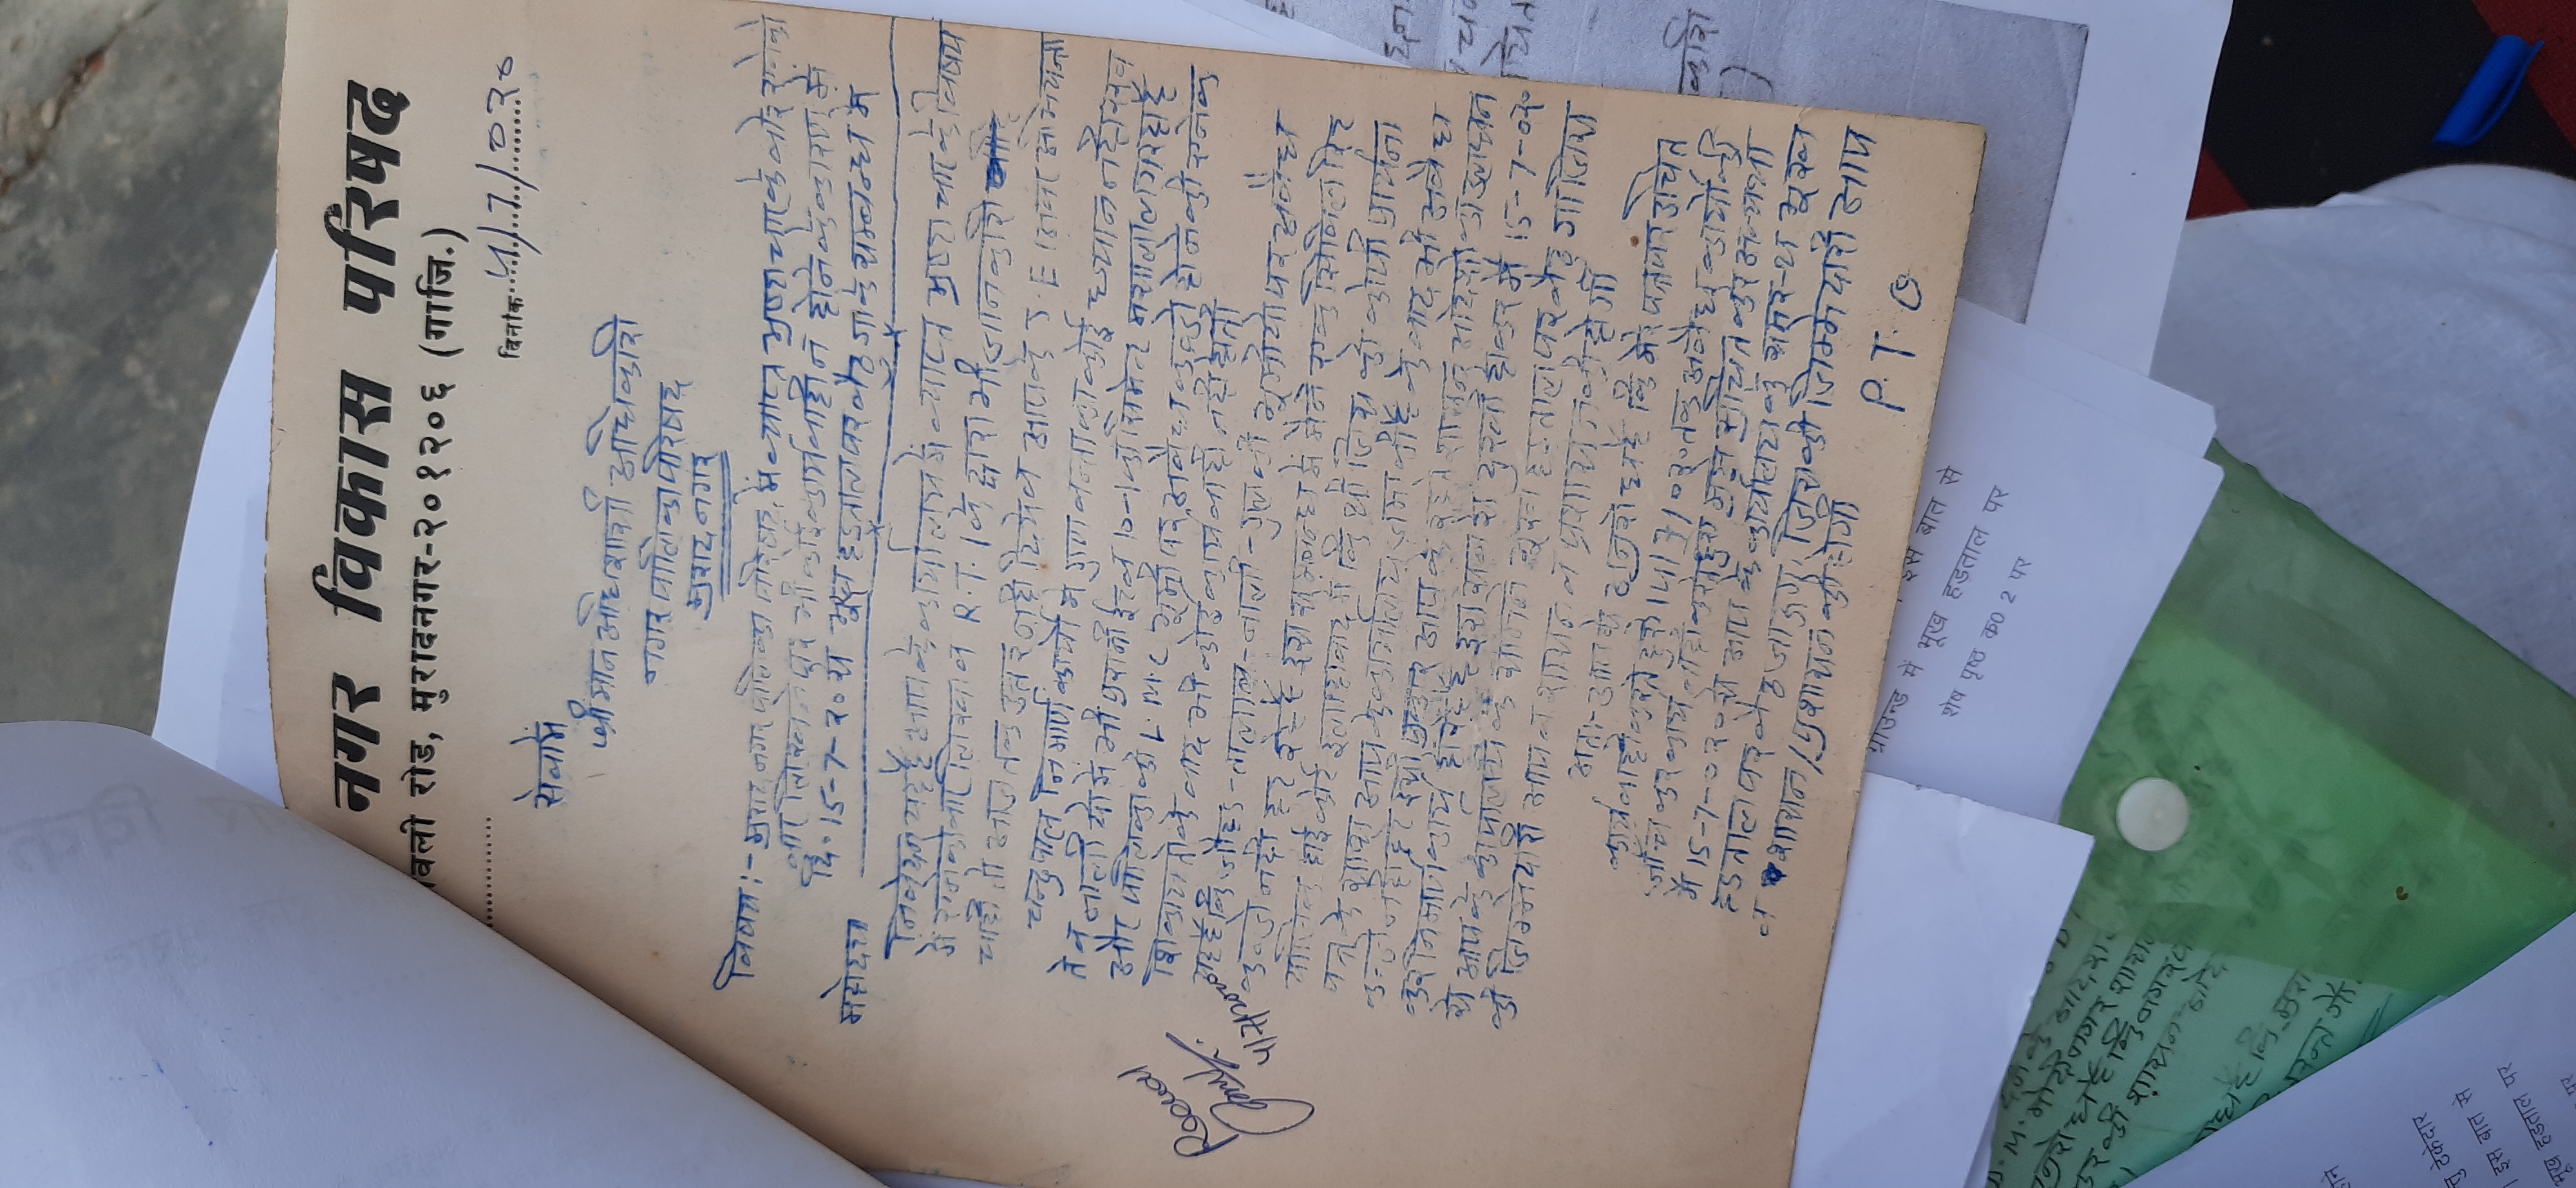 नगर विकास परिषद
वली रोड, मुरादनगर-२०१२०६ (गाजि.)
दिनांक 4/7/020
सेवामें
श्रीमान अधिशासी अधिकारी
नगर पालिका परिषद
मुरादनगर
विषय:- मुरादनगर पालिका परिषद में व्याप्त भ्रष्टाचार के
बार लिखने पर भी कोई कार्यवाही न होने के कारण में
दि. 15-7-20 से भूख हड़ताल पर बैठूगा के सम्बन्ध में
महोदय
निवेदन यह है आपके कार्यालय में व्याप्त भ्रष्टाचार के विषय
में अनेको बार लिखा व R.T.I के द्वारा भी जानकारी
चाही तो आज तक उत्तर नही दिये व आपके J.E अवर अभियन्ता
चन्द्रपाल निमार्ण कार्यो में गुणवत्ता का कोई ध्यान नही रख
ते व नालीयो में भी पुरानी ईट व 10-1 का सिमेन्ट मसाला लग रहा है
और पालिका की L.M.C भूमी पर अवैध कब्जे होने की अनेक
शिकायतो के बाद भी कोई कार्यवाही नही होती
यह है कि जौहड-तालाब-नाली-गूल की भूमीयो पर अवैध
कब्जे नही हट रहे है इस सम्बन्ध में मैने एक सिविल रिट
याचिका हाईकोर्ट इलाहाबाद में कि थी जिस की कोपी प्रार्थना
पत्र के साथ आप के कार्यालय जमा की है के बाद भी अवैध
कब्जे नही हटे इसी प्रकार आप के रहते शासन आदेशो का उलंघन
कर निमार्ण कार्य हो रहे है इस सब से दुखी होकर मै 15-7-020
से आप के कार्यालय के सामने भूख हडताल पर बैठूगा जिस
की जिम्मेदारी आप व शासन व प्रशासन की होगी
अतः- आप से अनुरोध है कि मेरे पत्र पर उचित
कार्यवाही करते हुऐ 14/7/020 तक अवैध कार्यो की
जॉच कर कार्यवाही करते हुए मुझे सुचित करे अन्यथा
मै 15-7-020 से आप के कार्यालय के समक्ष भूख
हडताल पर बैठ जाऊगा, जिसकी जिम्मेदारी आप
व शासन/प्रशासन की होगी
P.T.O
Received
4/7/2020
इस बात से
ग्राउन्ड में भूख हडताल पर
शेष पृष्ठ क0 2 पर
ठेकेदार
। इस बात से
भूख हडताल पर
पर